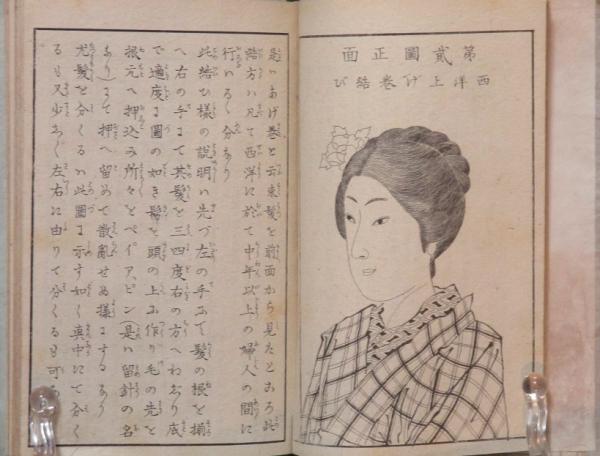 第貳圖正面
西洋上げ巻結び
是ハあげ巻と云束髪を前面から見たところ此
結方ハ凡て西洋に於て中年以上の婦人の間に
行ハるゝ分なり
此結ひ様の説明ハ先づ左の手にて髪の根を揃
へ右の手にて其髪を三四度右の方へねぢり
で適度に圖の如き髷を頭の上に作り毛の先を
根元へ押込み所々をペイア、ピン(是ハ留針の名
なり)にて押へ留めて散亂せぬ様にするなり
尤髪を分くるハ此圖に示す如く真中にて分く
るも又少しく左右に由りて分くるも可